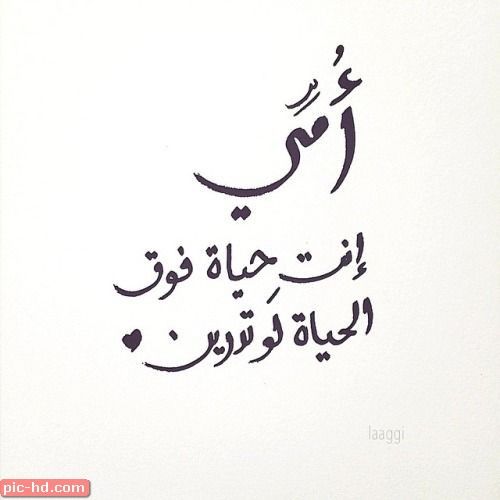 أُمّي
إنتِ حياة فوق
الحياة لَو تدرين ♥
laaggi
pic-hd.com